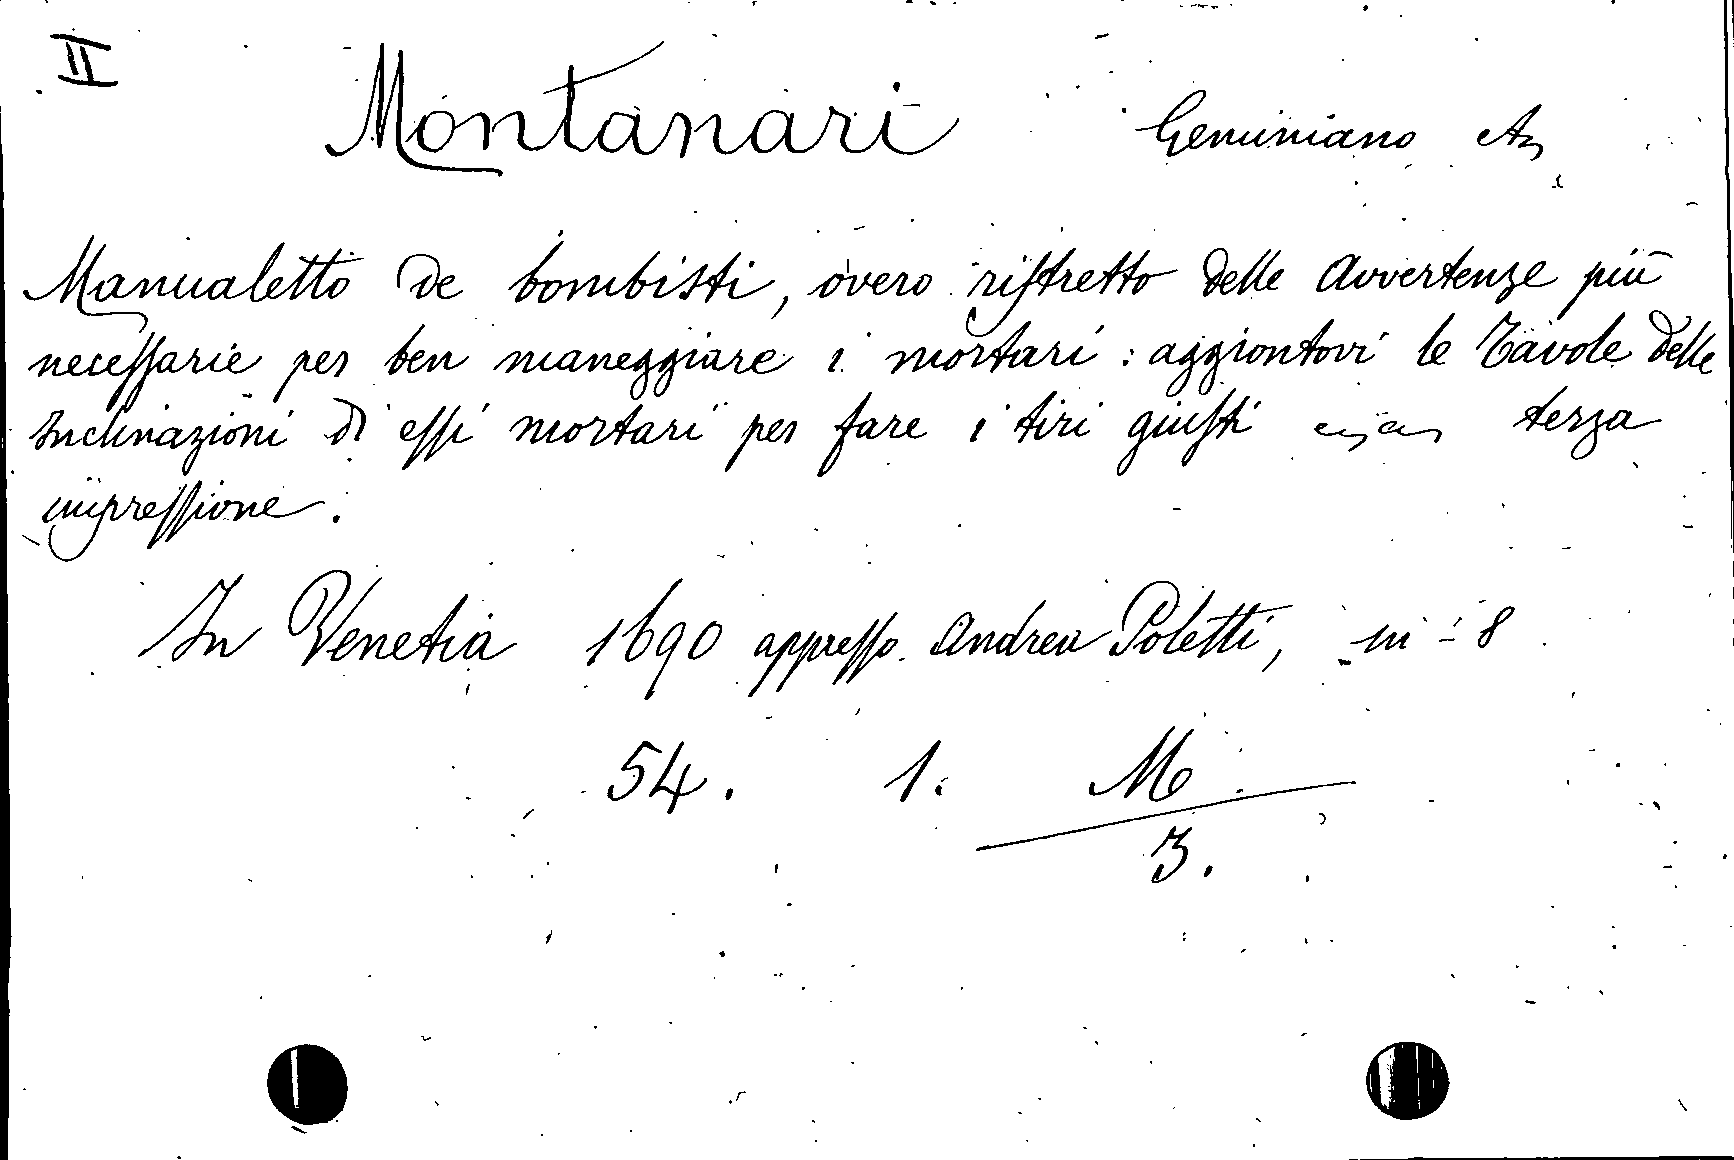 II
Montanari Geminiano
Manualetto de bombisti, overo riſtretto delle Avvertenze più
neceſſarie per ben maneggiare i mortari : aggiontovi le Tavole delle
Inclinazioni di eſſi mortari per fare i tiri giuſti terza
impreſſione.
In Venetia 1690 appreſſo Andrea Poletti, in - 8
54. 1. M
3.